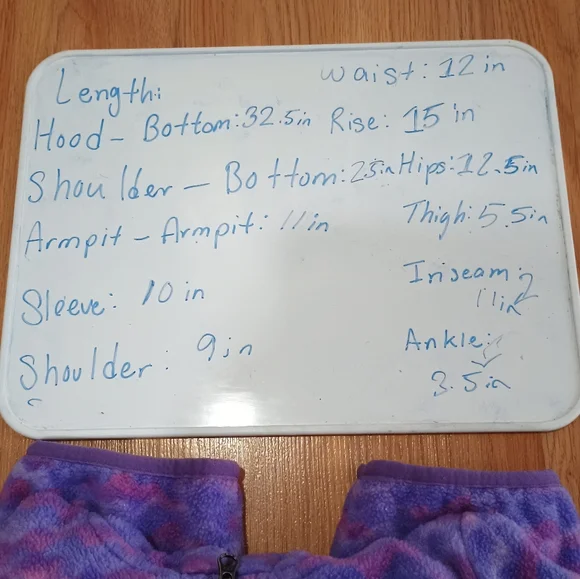 Length:
Hood - Bottom: 32.5in
Shoulder - Bottom: 25in
Armpit - Armpit: 11in
Sleeve: 10 in
Shoulder: 9in
Waist: 12 in
Rise: 15 in
Hips: 12.5in
Thigh: 5.5in
Inseam:
11in
Ankle:
3.5in